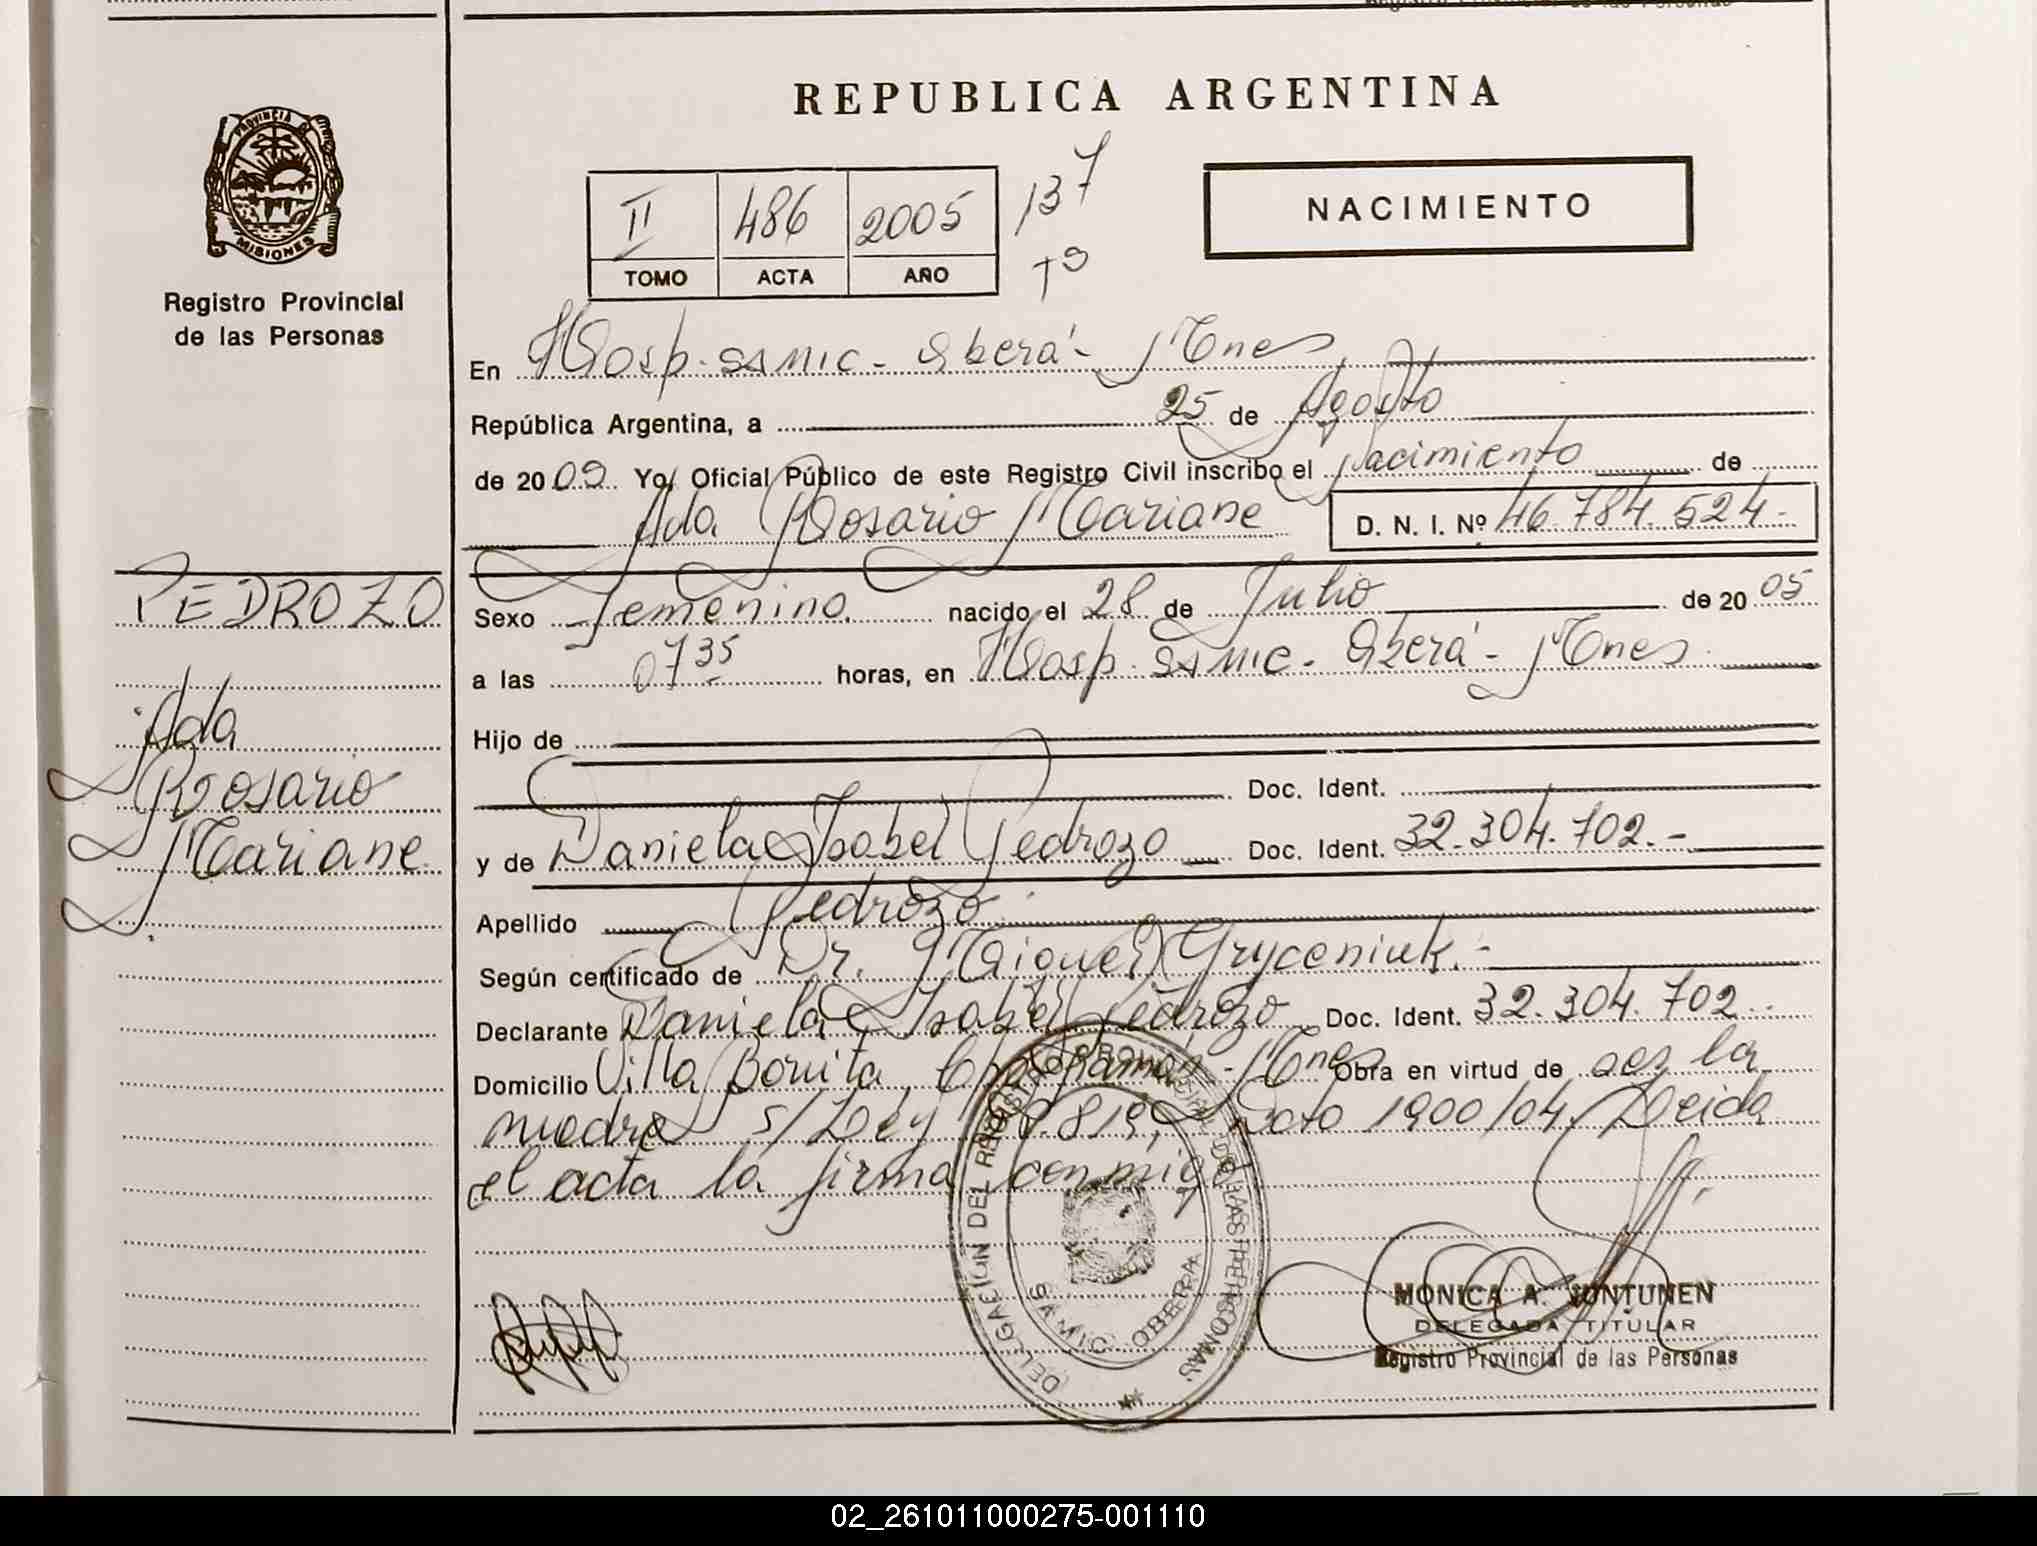 REPUBLICA ARGENTINA
PROVINCIA DE
MISIONES
Registro Provincial
de las Personas
II 486 2005
TOMO ACTA AÑO
137
Tº
NACIMIENTO
En Hosp. SAMIC - Oberá - Mnes.
República Argentina, a 25 de Agosto
de 2009 Yo, Oficial Público de este Registro Civil inscribo el Nacimiento de
Ada Rosario Mariane D. N. I. Nº 46.784.524.-
PEDROZO
Ada
Rosario
Mariane
Sexo Femenino. nacido el 28 de Julio de 2005
a las 0735 horas, en Hosp. SAMIC - Oberá - Mnes.
Hijo de
Doc. Ident.
y de Daniela Isabel Pedrozo Doc. Ident. 32.304.702.-
Apellido Pedrozo.
Según certificado de Dr. Miguel Gryceniuk.-
Declarante Daniela Isabel Pedrozo Doc. Ident. 32.304.702.-
Domicilio Villa Bonita, Cpo. Ramón - Mnes Obra en virtud de ser la
madre s/Ley 1900/04. Leida
el acta la firma conmigo
DELEGACION DEL REGISTRO PROVINCIAL DE LAS PERSONAS
SAMIC OBERA
MONICA A. JUNTUNEN
DELEGADA TITULAR
Registro Provincial de las Personas
02_261011000275-001110